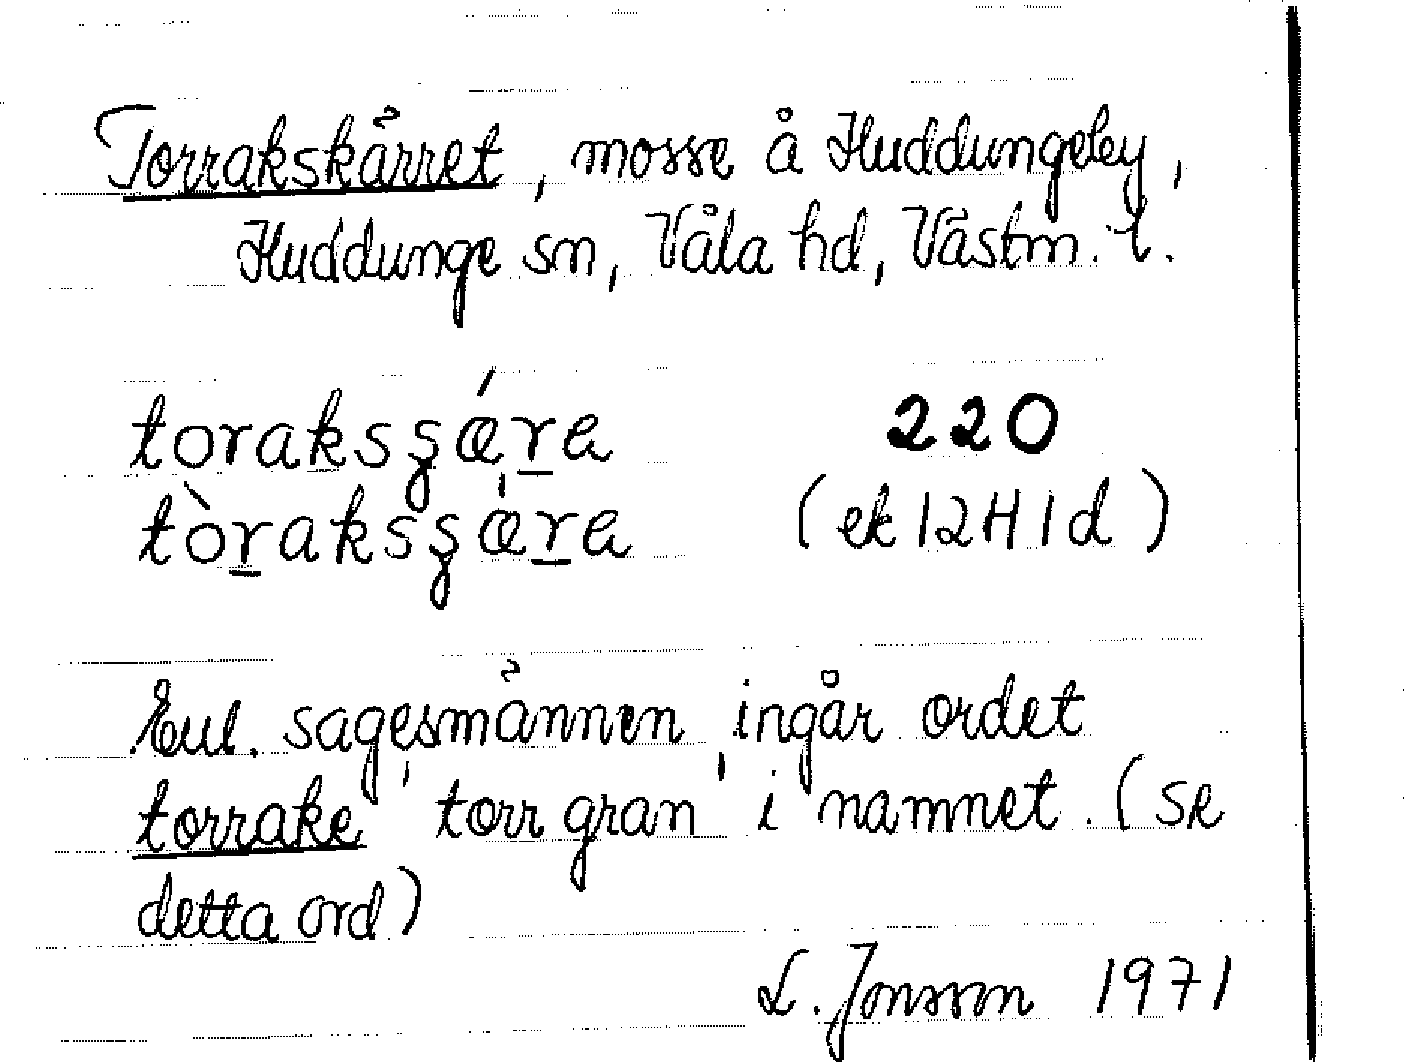 Torrakskärret, mosse å Huddungeby,
Huddunge sn, Våla hd, Västm. l.
toraksʂǽr̲a 220
tòr̲aksʂæ̍r̲a (ek 12H1d)
Enl. sagesmännen ingår ordet
torrake 'torr gran' i namnet. (se
detta ord)
L. Jonsson 1971